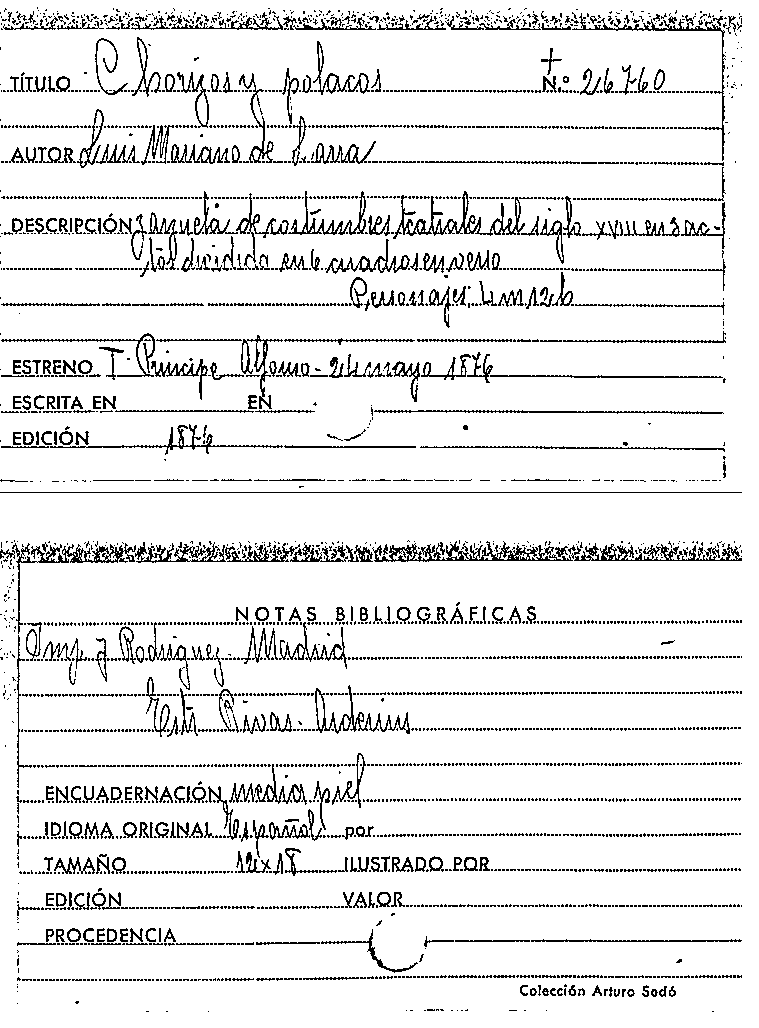 TÍTULO Chorizos y polacos N.º 26760
AUTOR Luis Mariano de Larra
DESCRIPCIÓN zarzuela de costumbres teatrales del siglo XVIII en 3 ac-
dividida en 6 cuadros en verso
Personajes: 4 m 12 h
ESTRENO T. Principe Alfonso - 24 mayo 1876
ESCRITA EN EN
EDICIÓN 1876
NOTAS BIBLIOGRÁFICAS
Imp. J Rodriguez - Madrid
Estr Rivas - Arderius
ENCUADERNACIÓN media piel
IDIOMA ORIGINAL Español por
TAMAÑO 12x18 ILUSTRADO POR
EDICIÓN VALOR
PROCEDENCIA
Colección Arturo Sedó